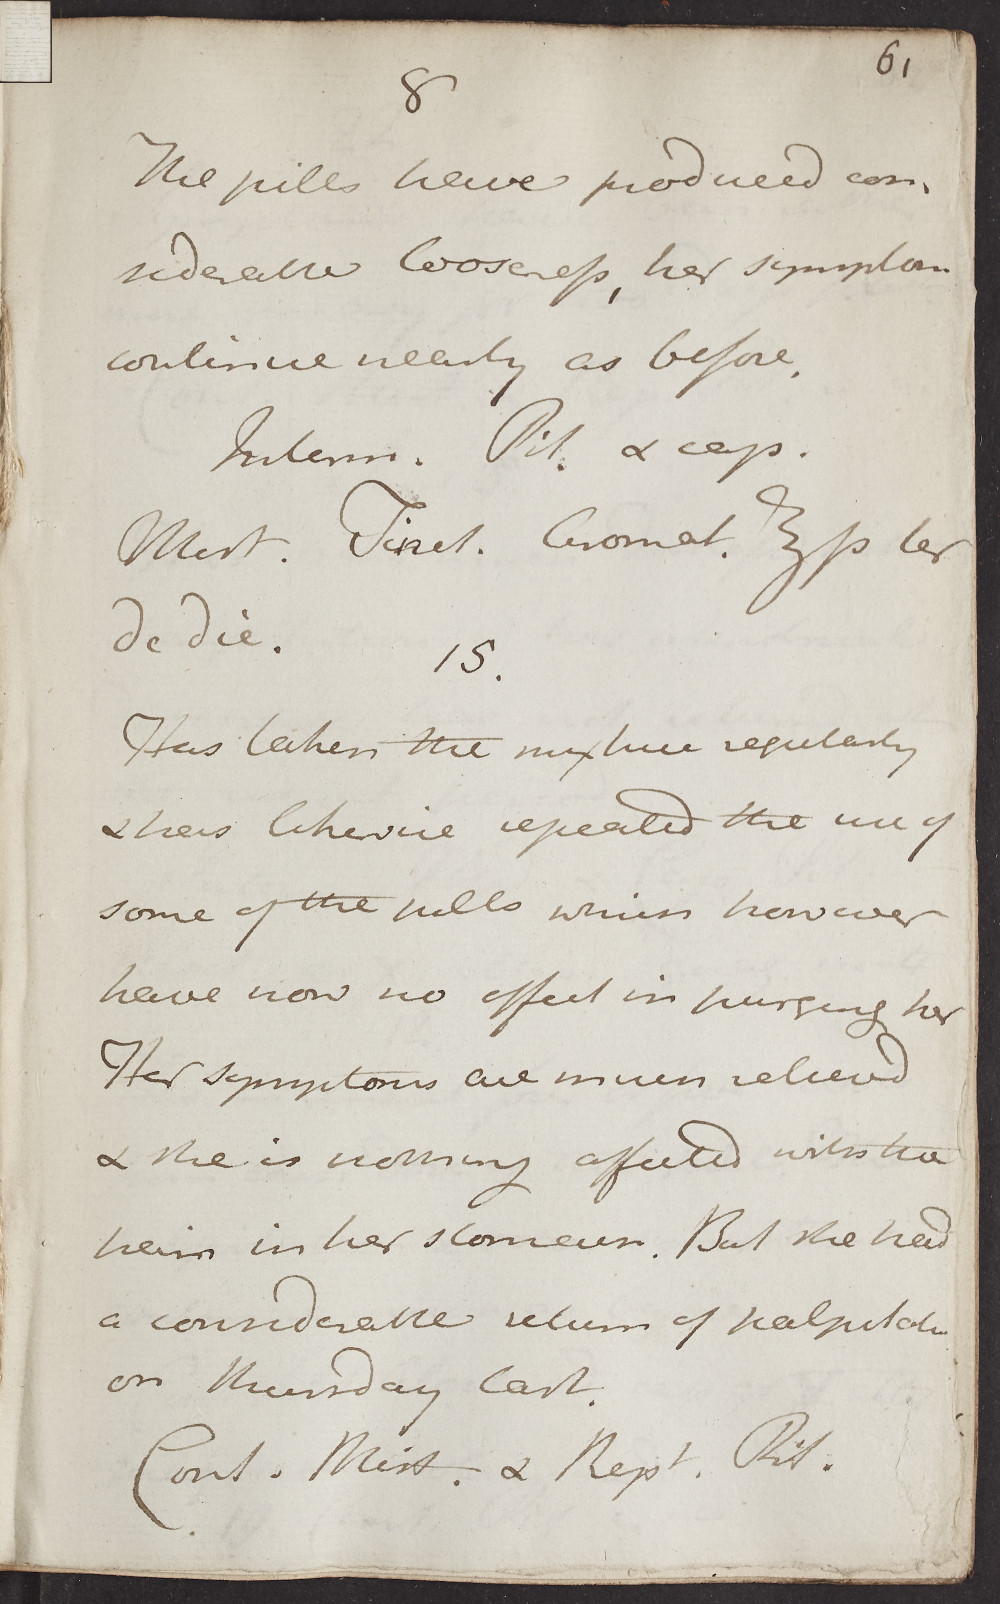 61
8
The pills have produced con-
siderable looseness, her symptom
continue nearly as before.
Interm. Pil. & cap.
Mist. Tinct. Aromat. ℥ß ter
de die.
15.
Has taken the mixture regularly
& has likewise repeated the use of
some of the pills which however
have now no effect in purging her
Her symptoms are much relieved
& she is nothing affected with the
pain in her stomach. But she had
a considerable return of palpitatn
on Thursday last.
Cont. Mist. & Rept. Pil.